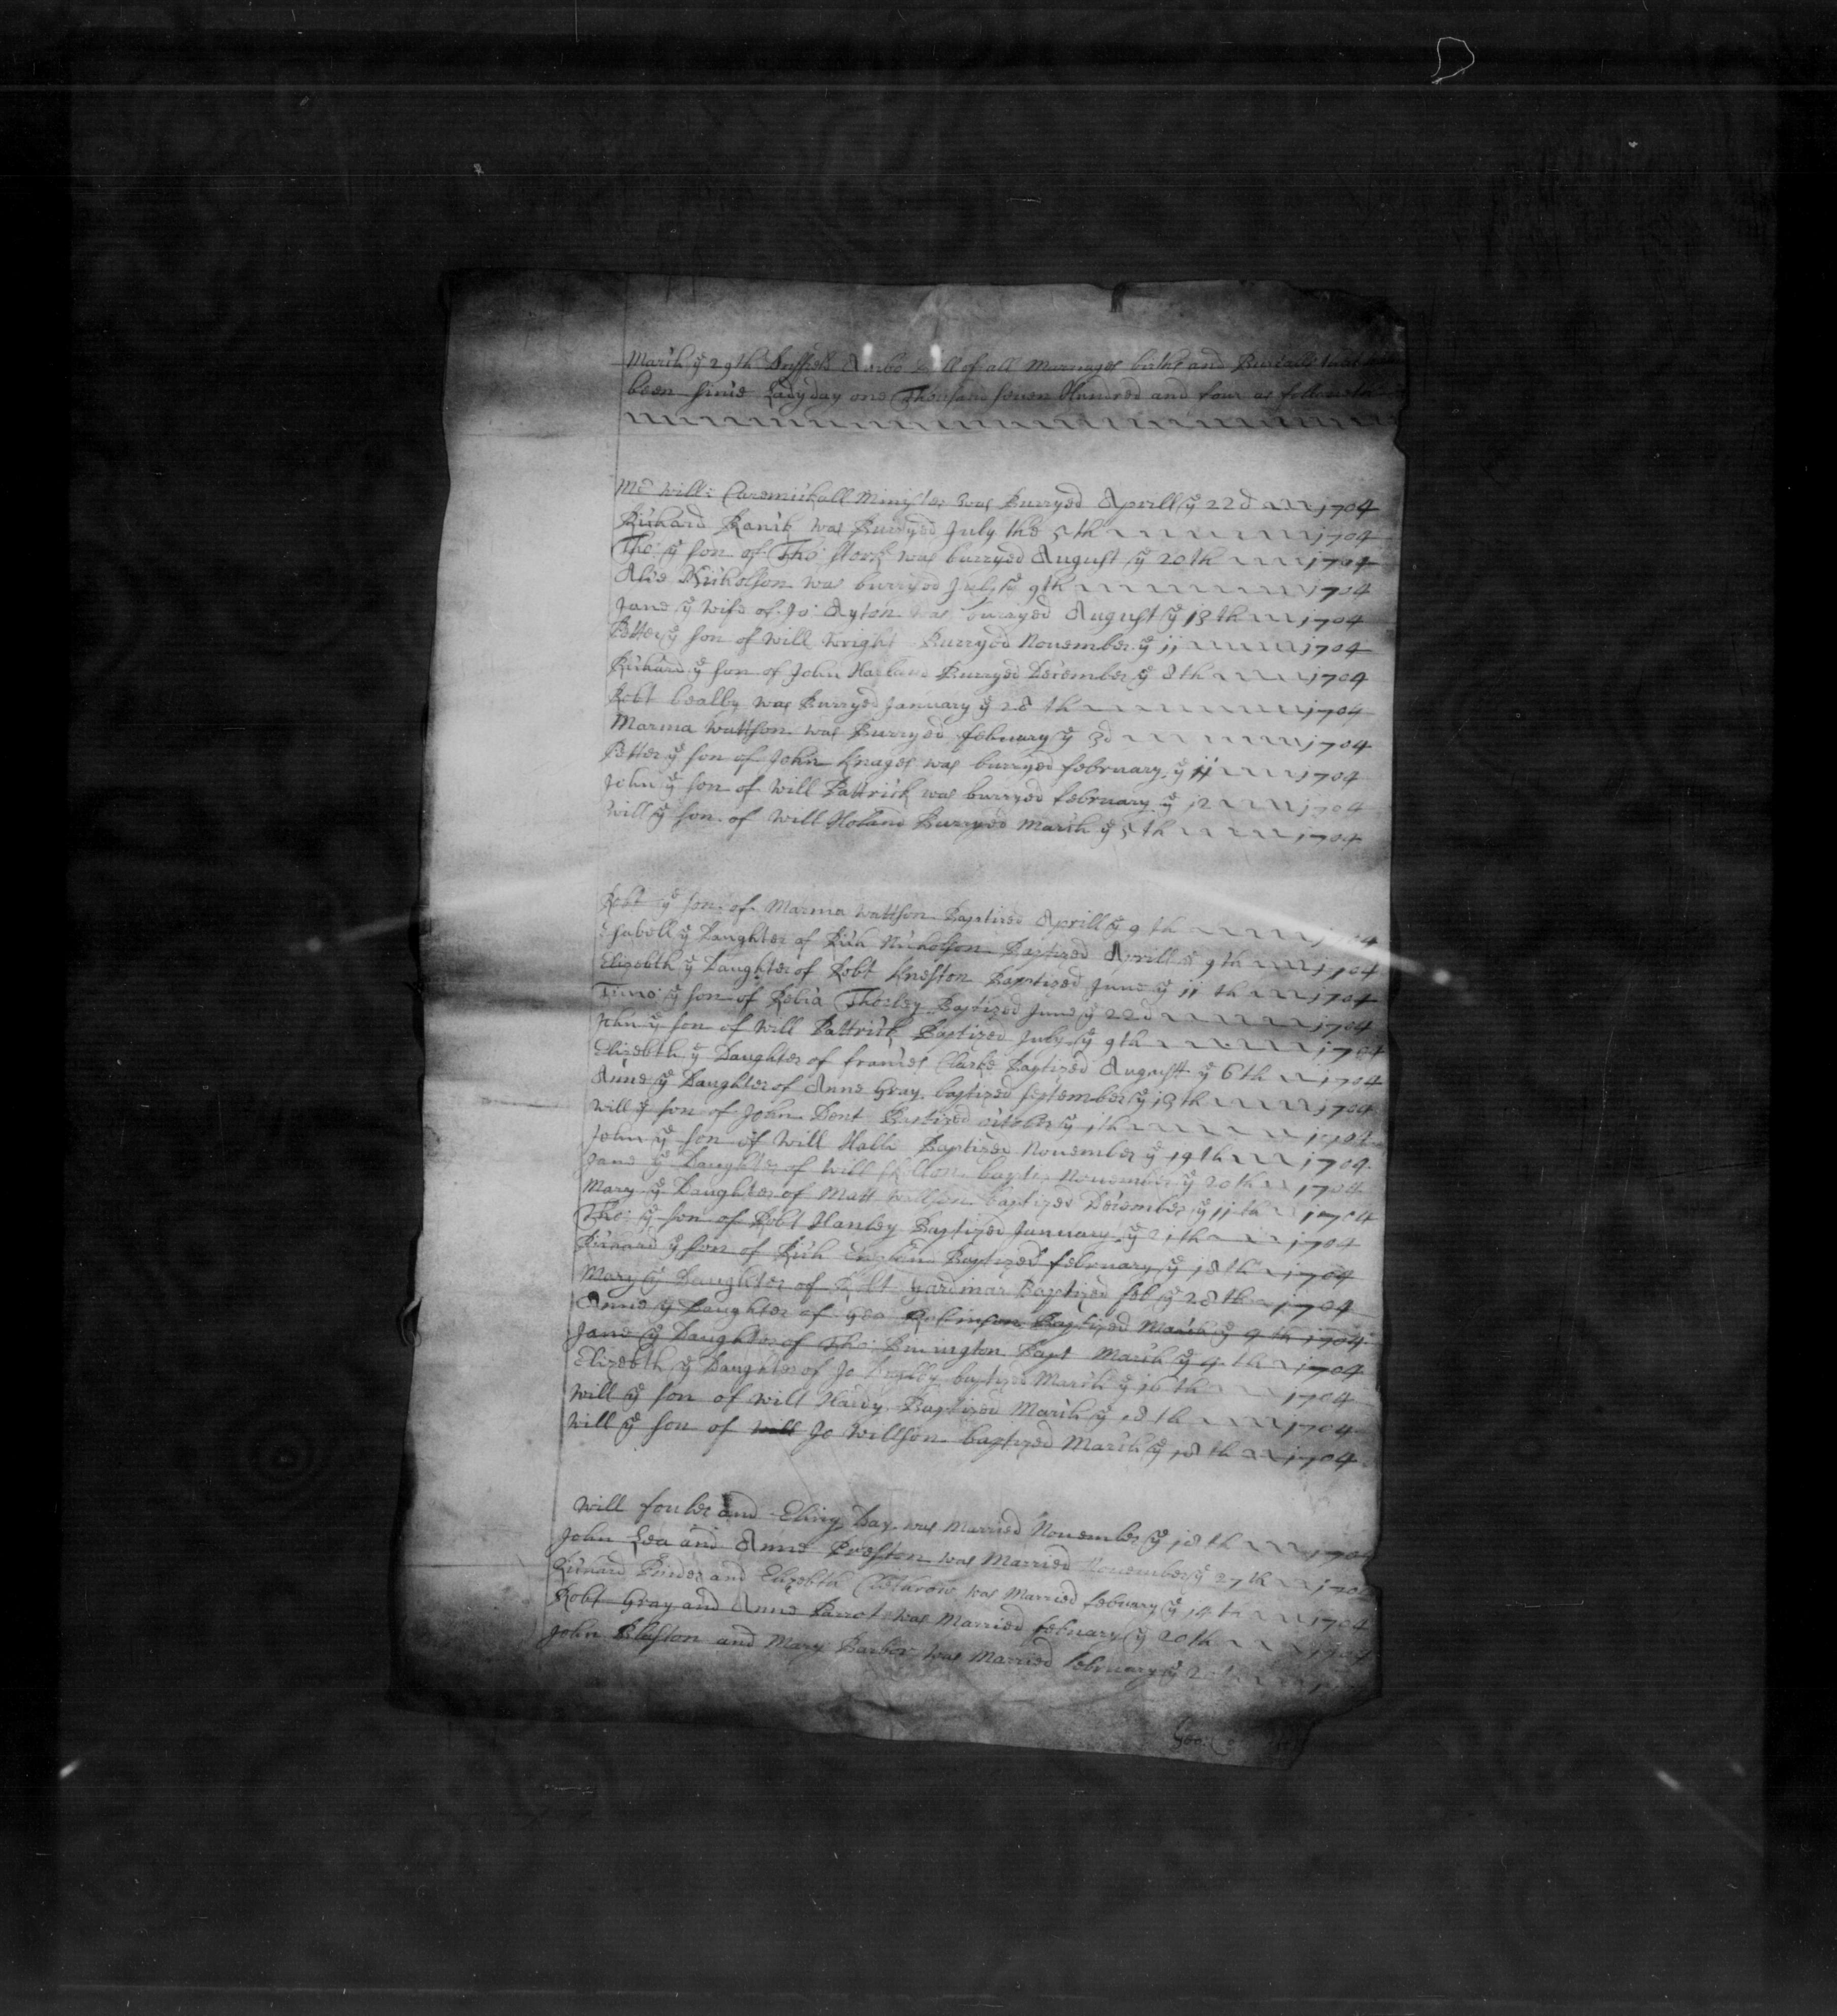 March ye 29th Driffeld A true Bill of all Marriages births and Burialls that
been sinc'e Ladyday one Thousand seven Hundred and four as followeth
Mr Will: Caremickall Minister was Burryed Aprill ye 22d 1704
Richard Ranik was Burryed July the 5th 1704
Tho: ye son of Tho: Stork was burryed August ye 20th 1704
Alice Nickolson was burryed July ye 9th 1704
Jane ye wife of Jo: Ayton was burryed August ye 13th 1704
Petter ye son of Will Wright Burryed November ye 11 1704
Richard ye son of John Harland Burryed December ye 8th 1704
Robt bealby was Burryed January ye 28th 1704
Marma Wattson was Burryed february ye 3d 1704
Petter ye son of John Knages was burryed february ye 11 1704
John ye son of Will Pattrick was burryed february ye 12 1704
Will ye son of Will Holand Burryed March ye 5th 1704
Robt ye son of Marma Wattson Baptized Aprill ye 9th 1704
Isabell ye Daughter of Rich Nickolson Baptized Aprill ye 9th 1704
Elizebth ye Daughter of Robt Kneston Baptized June ye 11th 1704
ye son of Thorley Baptized June ye 22d 1704
John ye son of Will Pattrick Baptized July ye 9th 1704
Elizebth ye Daughter of francies Clarke Baptized August ye 6th 1704
Anne ye Daughter of Anne Gray baptized september ye 13th 1704
Will ye son of John Dent Baptized october ye 1th 1704
John ye son of Will Halle Baptized November ye 19th 1704
Jane ye Daughter of Will baptiz November ye 20th 1704
Mary ye Daughter of Matt Willson baptized December ye 11th 1704
Tho: ye son of Robt Hanley Baptized January ye 1704
Richard ye son of Rich Baptized february ye 18th 1704
Mary ye Daughter of Robt Gardinar Baptized feb ye 28th 1704
Anne ye Daughter of Geo Robinson Baptized March ye 9th 1704
Jane ye Daughter of Tho: Binington Bapt March ye 9th 1704
Elizebth ye Daughter of Jo baptized March ye 16th 1704
Will ye son of Will Hardy Baptized March ye 18th 1704
Will ye son of will Jo Willson baptized March ye 18th 1704
Will fouler and Day was Married November ye 18th 1704
John Lea and Anne Preston was Married November ye 27th 1704
Richard and Elizebth was Married febuary ye 14th 1704
Robt Gray and Anne Parrot was Married febuary ye 20th 1704
John Blaston and Mary Barber was Married february ye
Geo: